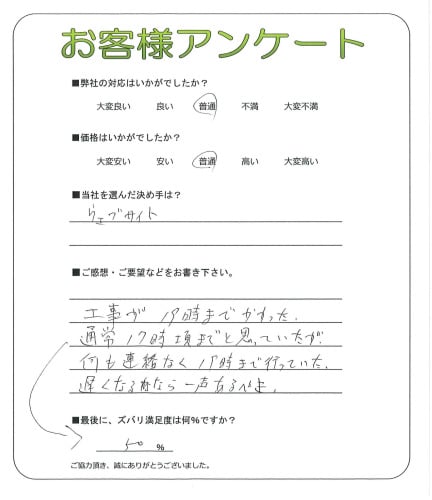 お客様アンケート
■弊社の対応はいかがでしたか？
大変良い 良い 普通 不満 大変不満
■価格はいかがでしたか？
大変安い 安い 普通 高い 大変高い
■当社を選んだ決め手は？
ウェブサイト
■ご感想・ご要望などをお書き下さい。
工事が 19時までかかった.
通常 17時頃までと思っていたが
何も連絡なく 19時まで行っていた.
遅くなるなら一声あるべき.
■最後に、ズバリ満足度は何％ですか？
50 ％
ご協力頂き、誠にありがとうございました。